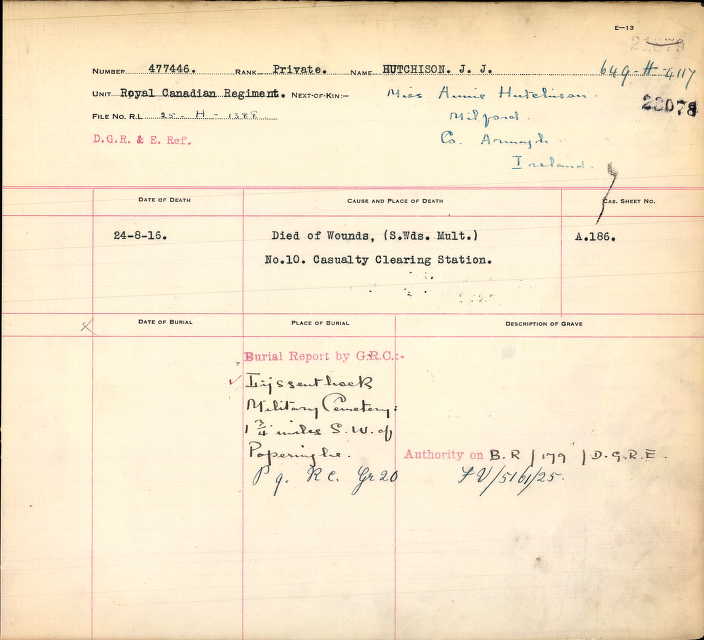 E—13
23078
NUMBER 477446. RANK Private. NAME HUTCHISON. J. J. 649-H-4117
UNIT Royal Canadian Regiment. NEXT-OF-KIN:— Miss Annie Hutchison.
23078
FILE NO. R.L. 25 - H - Milford.
D.G.R. & E. Ref. Co. Armagh.
Ireland.
DATE OF DEATH CAUSE AND PLACE OF DEATH CAS. SHEET NO.
24-8-16. Died of Wounds, (S.Wds. Mult.) A.186.
No.10. Casualty Clearing Station.
DATE OF BURIAL PLACE OF BURIAL DESCRIPTION OF GRAVE
Burial Report by G.R.C.:-
Lijssenthoek
Military Cemetery:
1 3/4 miles S.W. of
Poperinghe. Authority on B.R/179/D.G.R.E.
P 9. R C. Gr 20